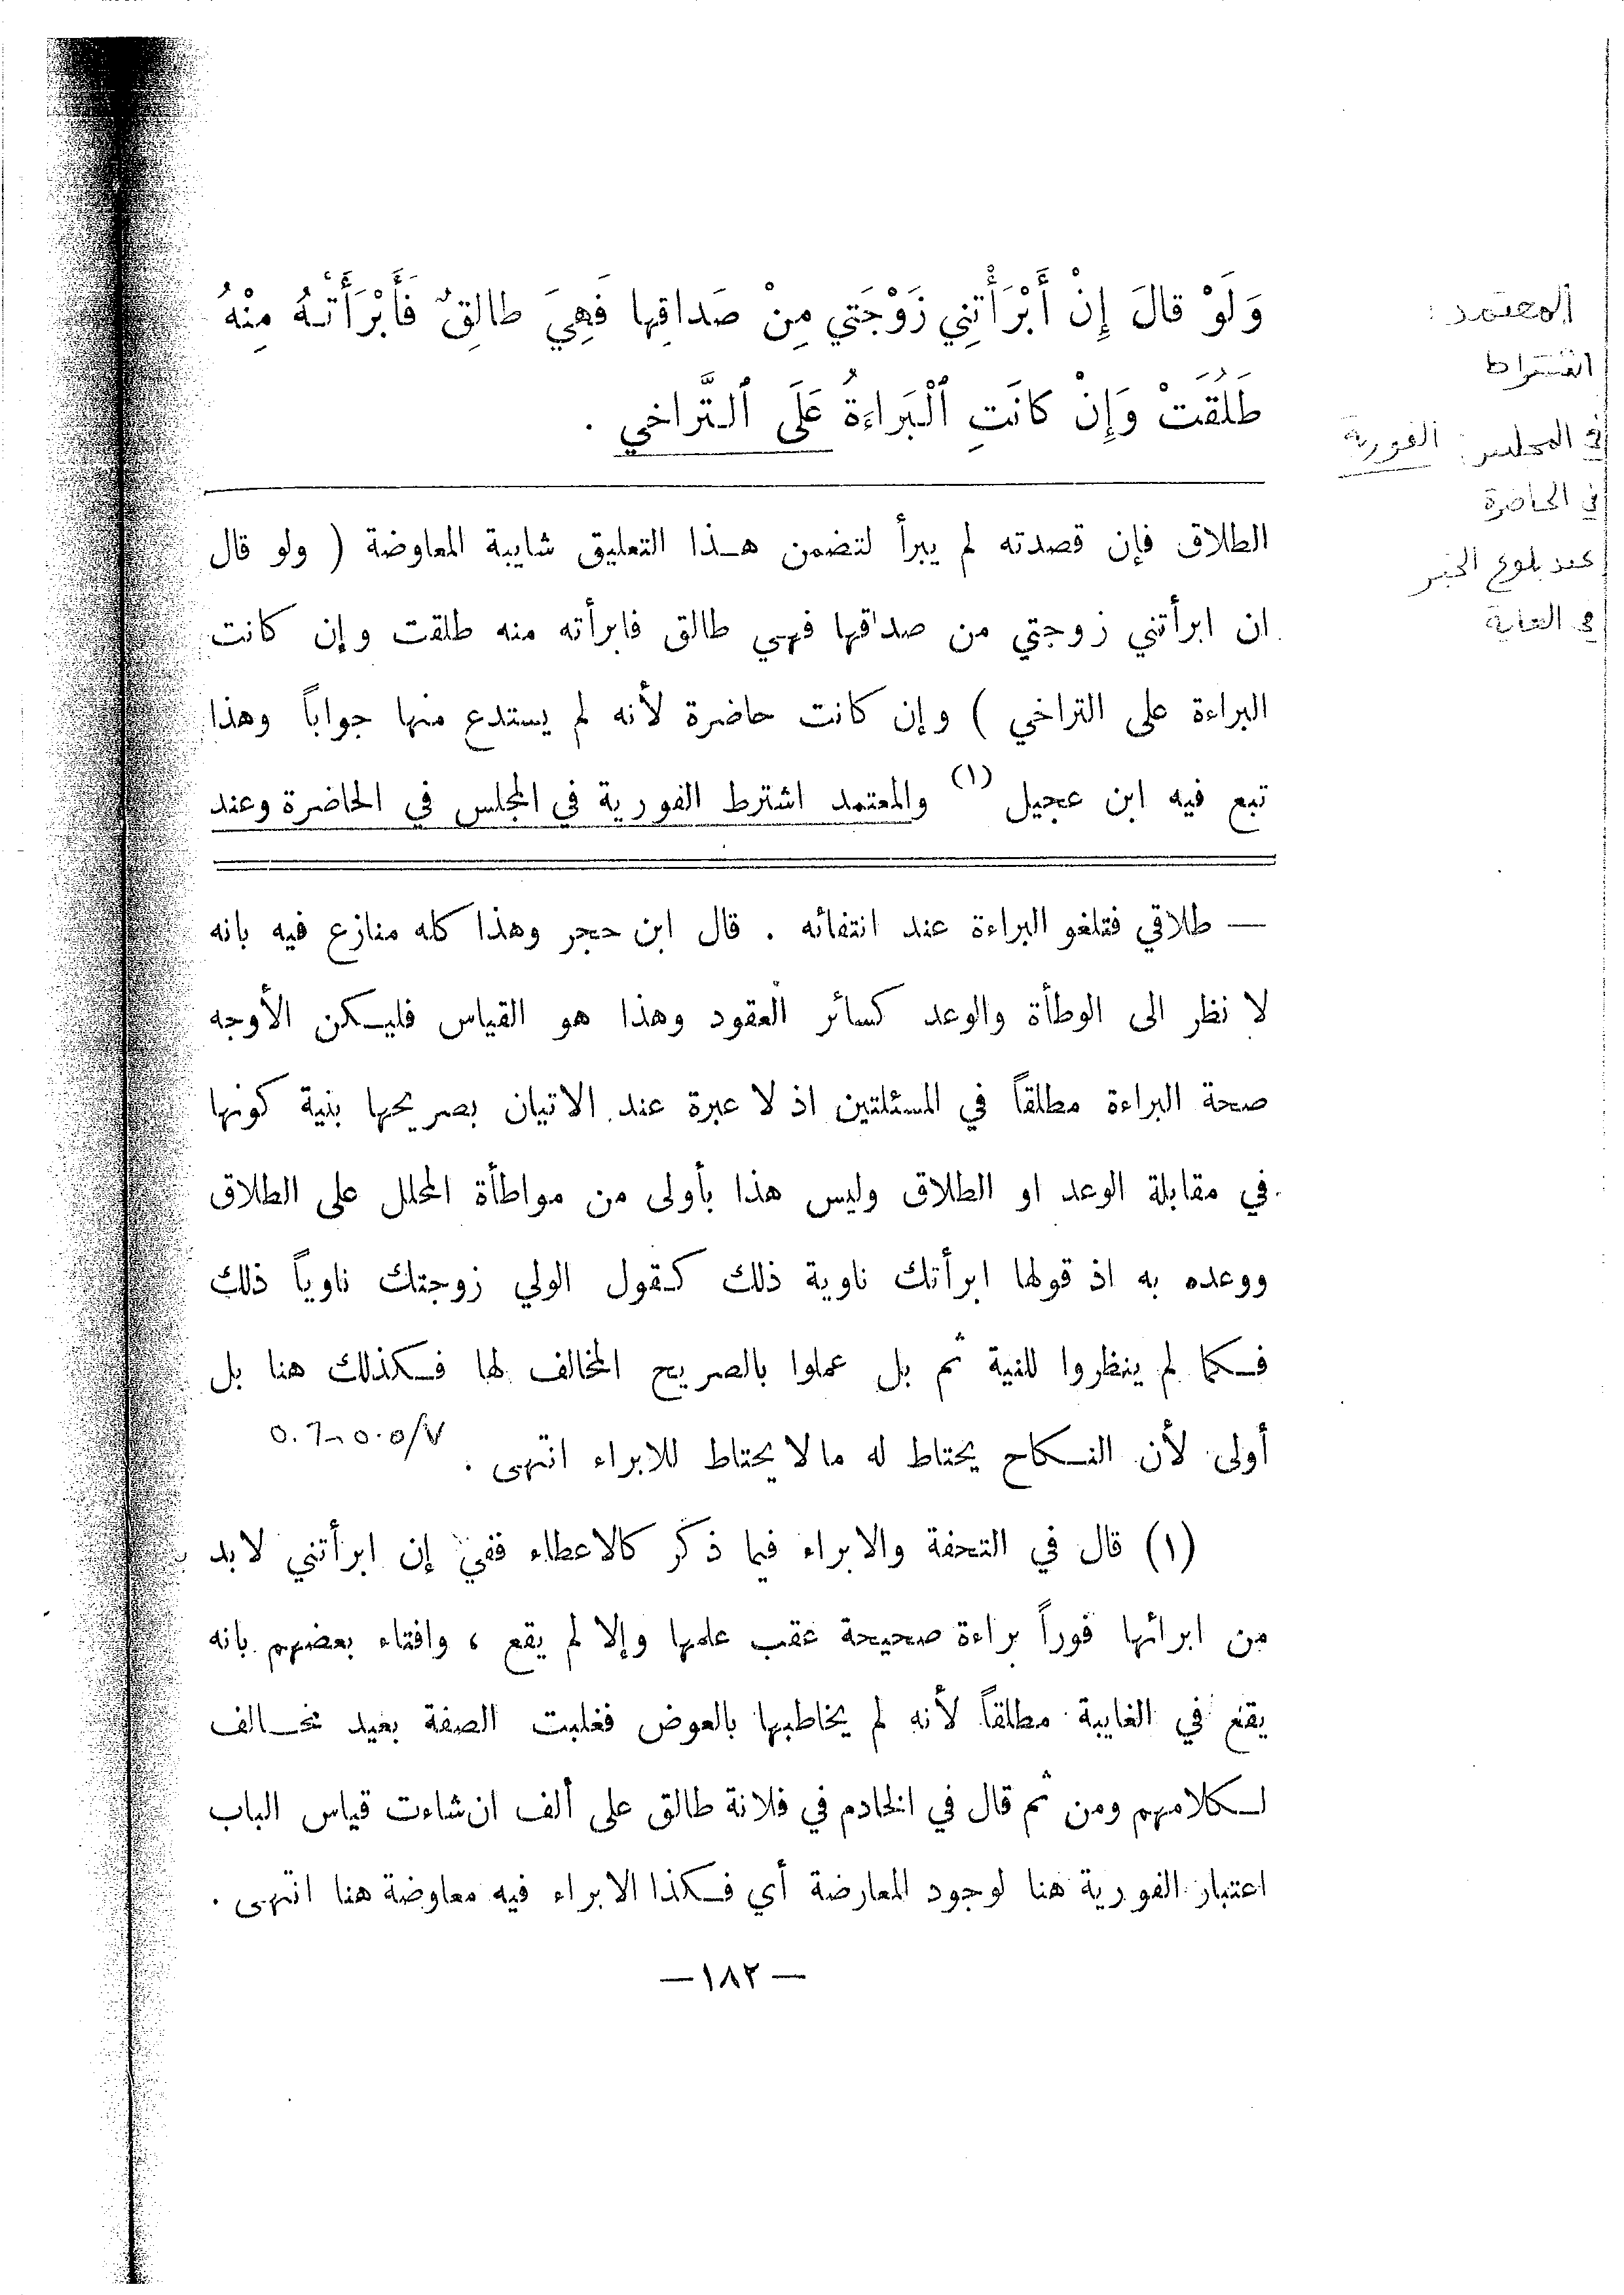 وَلَوْ قالَ إِنْ أَبْرَأَتْنِي زَوْجَتي مِنْ صَداقِها فَهِيَ طالِقٌ فَأَبْرَأَتْهُ مِنْهُ
طَلُقَتْ وَإِنْ كانَتِ ٱلْبَراءَةُ عَلَى ٱلتَّراخي .
الطلاق فإن قصدته لم يبرأ لتضمن هذا التعليق شايبة المعاوضة ( ولو قال
ان ابرأتني زوجتي من صداقها فهي طالق فابرأته منه طلقت وإن كانت
البراءة على التراخي ) وإن كانت حاضرة لأنه لم يستدع منها جواباً وهذا
تبع فيه ابن عجيل (١) والمعتمد اشترط الفورية في المجلس في الحاضرة وعند
— طلاقي فتلغو البراءة عند انتفائه . قال ابن حجر وهذا كله منازع فيه بانه
لا نظر الى الوطأة والوعد كسائر العقود وهذا هو القياس فليكن الأوجه
صحة البراءة مطلقاً في المسئلتين اذ لا عبرة عند الاتيان بصريحها بنية كونها
في مقابلة الوعد او الطلاق وليس هذا بأولى من مواطأة المحلل على الطلاق
ووعده به اذ قولها ابرأتك ناوية ذلك كقول الولي زوجتك ناوياً ذلك
فكما لم ينظروا للنية ثم بل عملوا بالصريح المخالف لها فكذلك هنا بل
أولى لأن النكاح يحتاط له ما لا يحتاط للابراء انتهى . ٧/٥٠٥-٥٠٦
(١) قال في التحفة والابراء فيما ذكر كالاعطاء ففي إن ابرأتني لا بد
من ابرائها فوراً براءة صحيحة عقب علمها وإلا لم يقع ، وافتاء بعضهم بانه
يقع في الغايبة مطلقاً لأنه لم يخاطبها بالعوض فغلبت الصفة بعيد مخالف
لكلامهم ومن ثم قال في الخادم في فلانة طالق على ألف ان شاءت قياس الباب
اعتبار الفورية هنا لوجود المعارضة أي فكذا الابراء فيه معاوضة هنا انتهى .
— ١٨٢ —
المعتمد :
اشتراط
الفورية في المجلس
في الحاضرة
عند بلوغ الخبر
في الغايبة